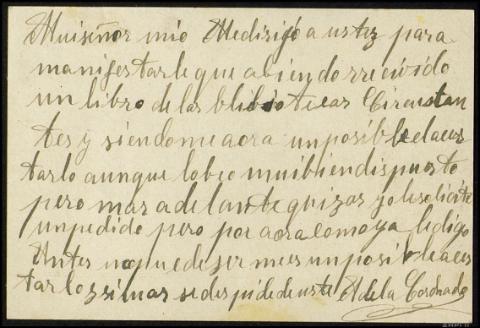 Muiseñor mio Medirijo a ustez para
manifestarle que abiendo rrecivido
un libro de las bibliotecas Circulan
tes y siendome aora unposible acer
tarlo aunque lo beo mui bien dispuesto
pero mas adelante quizas yo le solicite
un pedido pero por aora como ya le digo
Antes no puede ser me es unposible acer
tarlo ssi mas se des pide de uste Adela Coronado